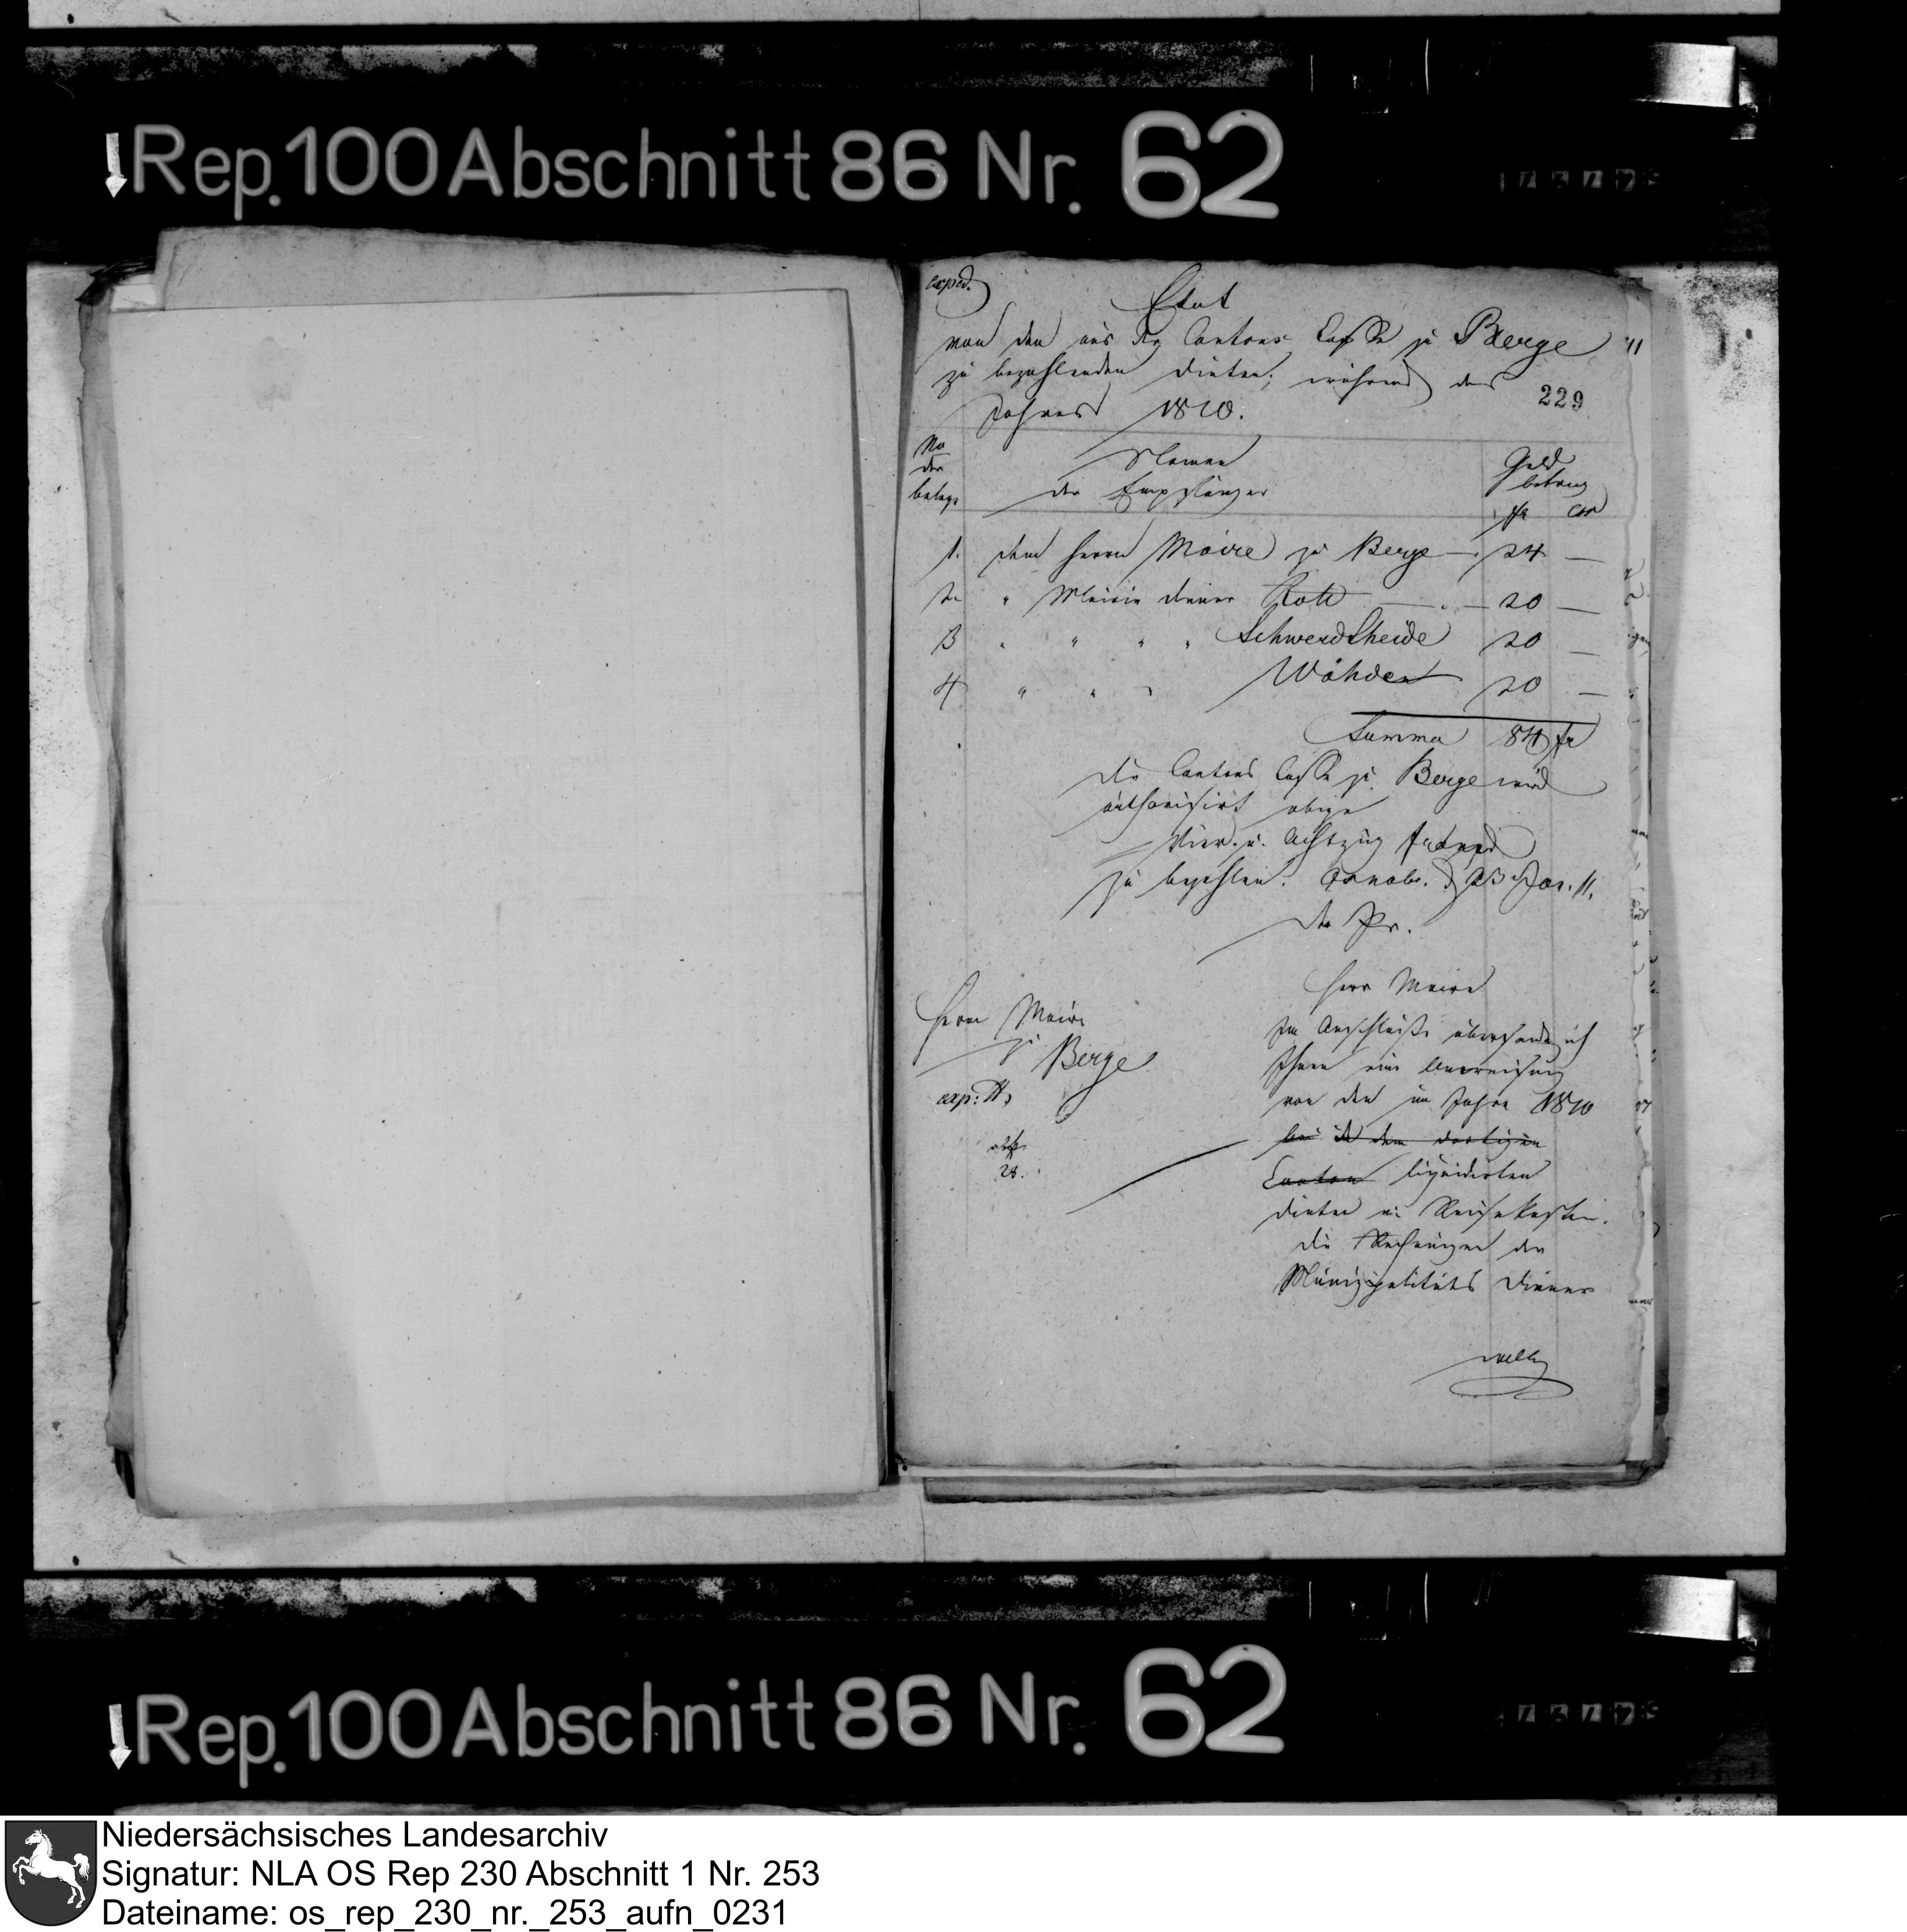 Rep. 100 Abschnitt 86 Nr. 62
exped.
Etat
von den aus der Cantons Casse zu Berge
zu bezahlenden Diäten, während des
229
Jahres 1810.
No
der
belege
Namen
der Empfänger
Geld
betrag
fr
1. dem Herrn Maire zu Berge 24 —
2. " Mairie diener 20 —
3 " " " " Schwerdtheide 20 —
4 " " " Wöhden 20 —
Summa 84 fr
Die Cantons Casse zu Berge wird
authorisirt obige
Vier u. Achtzig
zu bezahlen. Osnabr. d 23 Jan. 11.
Der Pr.
Herrn Maire
zu Berge
exp:
28.
Herr Maire
Im Anschlusse übersende ich
Ihnen eine Anweisung
von den im Jahre 1810
bei dem dortigen
Canton liquidirten
Diäten u. Reisekosten.
Die Rechnungen der
Munizipalitäts Diener
Rep. 100 Abschnitt 86 Nr. 62
Niedersächsisches Landesarchiv
Signatur: NLA OS Rep 230 Abschnitt 1 Nr. 253
Dateiname: os_rep_230_nr._253_aufn_0231